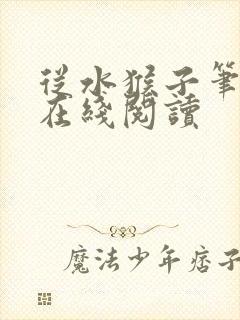 從水猴子筆
在綫閱讀
魔法少年痞子